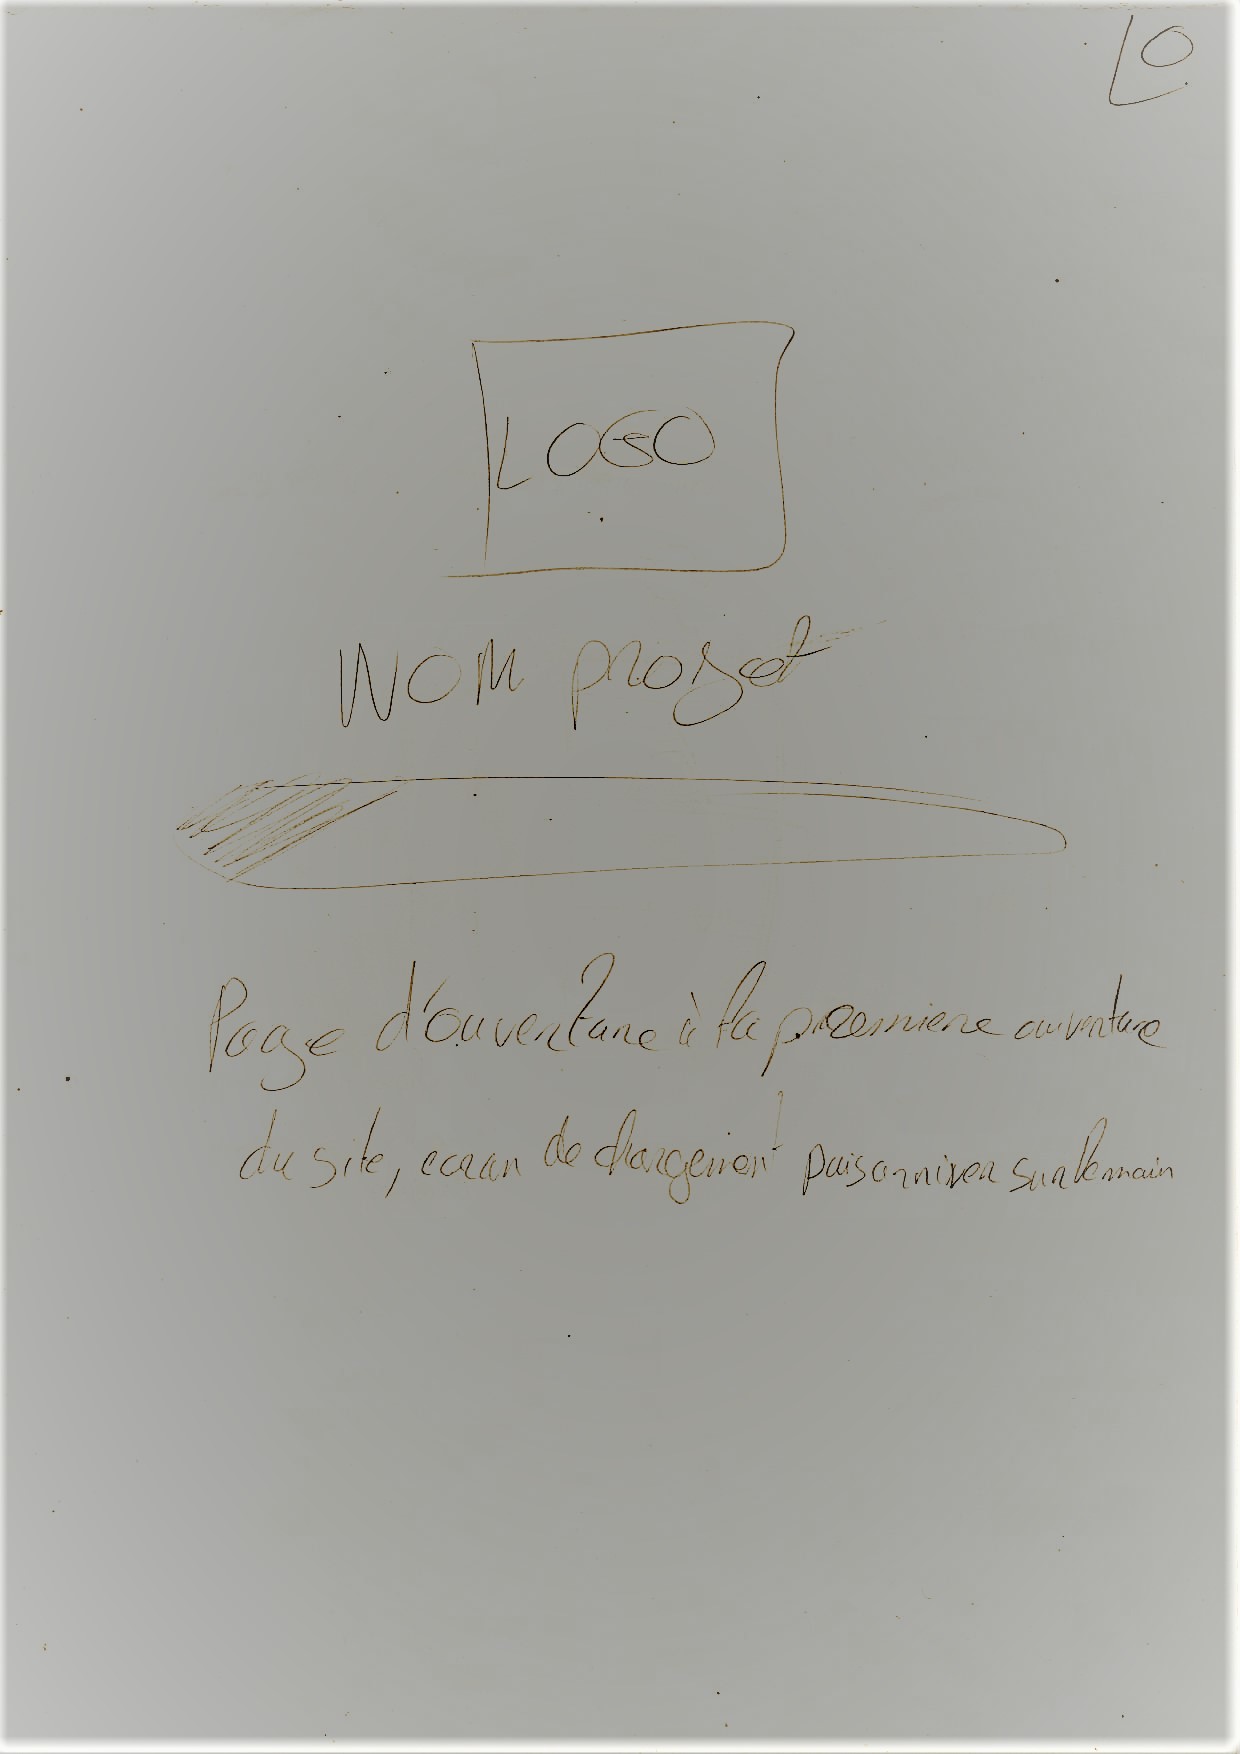 LO
LOGO
NOM projet
Page d'ouverture à la premiere ouverture
du site, ecran de chargement puis arriver sur le main